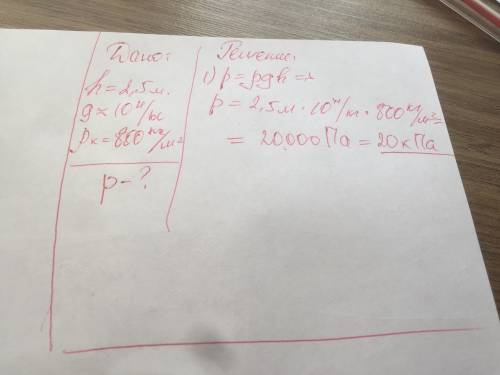 Дано:
h = 2,5 м.
g ≈ 10 н/кг
ρк = 800 кг/м³
p - ?
Решение:
1) p = ρgh =>
p = 2,5 м · 10 н/кг · 800 кг/м³ =
= 20000 Па = 20 кПа